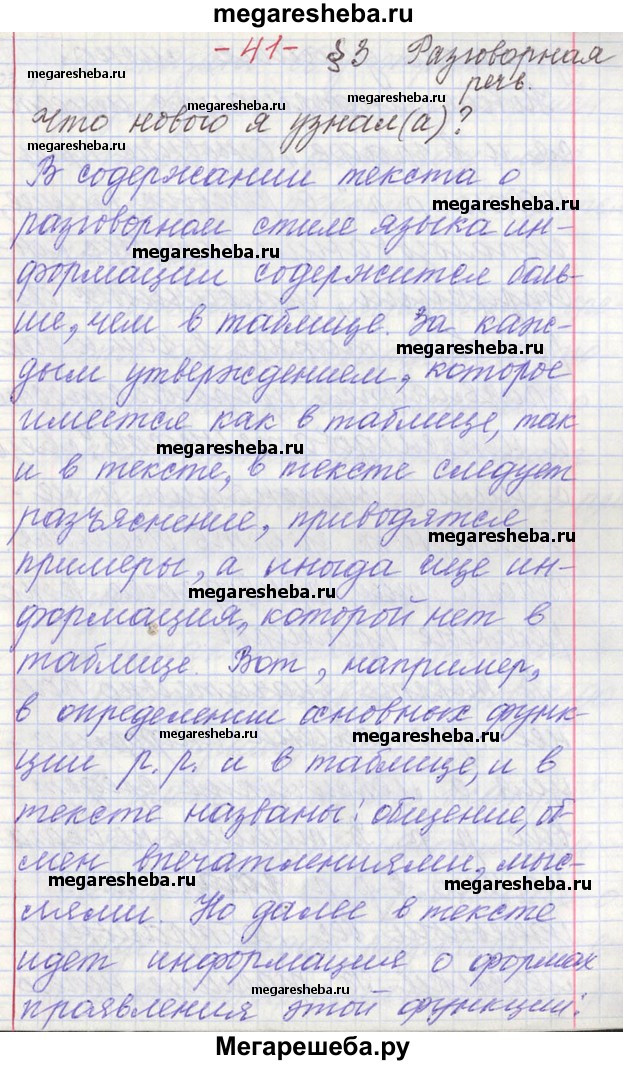 megaresheba.ru
- 41 - § 3 Разговорная
megaresheba.ru megaresheba.ru
речь.
megaresheba.ru
Что нового я узнал(а)?
megaresheba.ru
В содержании текста о
разговорном стиле языка ин-
megaresheba.ru
формации содержится боль-
ше, чем в таблице. За каж-
megaresheba.ru
дым утверждением, которое
имеется как в таблице, так
megaresheba.ru
и в тексте, в тексте следует
разъяснение, приводятся
megaresheba.ru
примеры, а иногда еще ин-
megaresheba.ru
формация, которой нет в
таблице. Вот, например,
в определении основных функ-
megaresheba.ru megaresheba.ru
ции р.р. и в таблице, и в
тексте названы: общение, об-
мен впечатлениями, мыс-
megaresheba.ru megaresheba.ru
лями. Но далее в тексте
идет информация о формах
megaresheba.ru
проявления этой функции:
Мегарешеба.ру